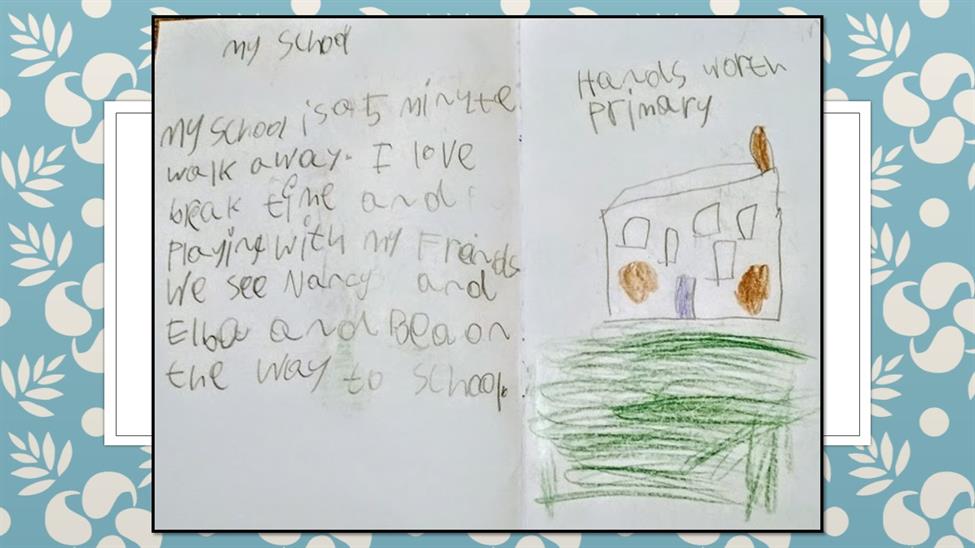 my school
my school is a 5 minyte
walk away. I love
break time and
playing with my Friends
We see Nancy and
Elba and Bea on
the way to school.
Hands worth
primary